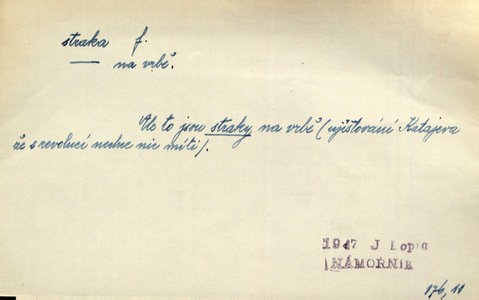 straka f.
na vrbě.
Ale to jsou straky na vrbě (ujišťování Katajeva
že s revolucí nechce nic míti).
1947 J Kopta
NÁMOŘNÍK
176, 11